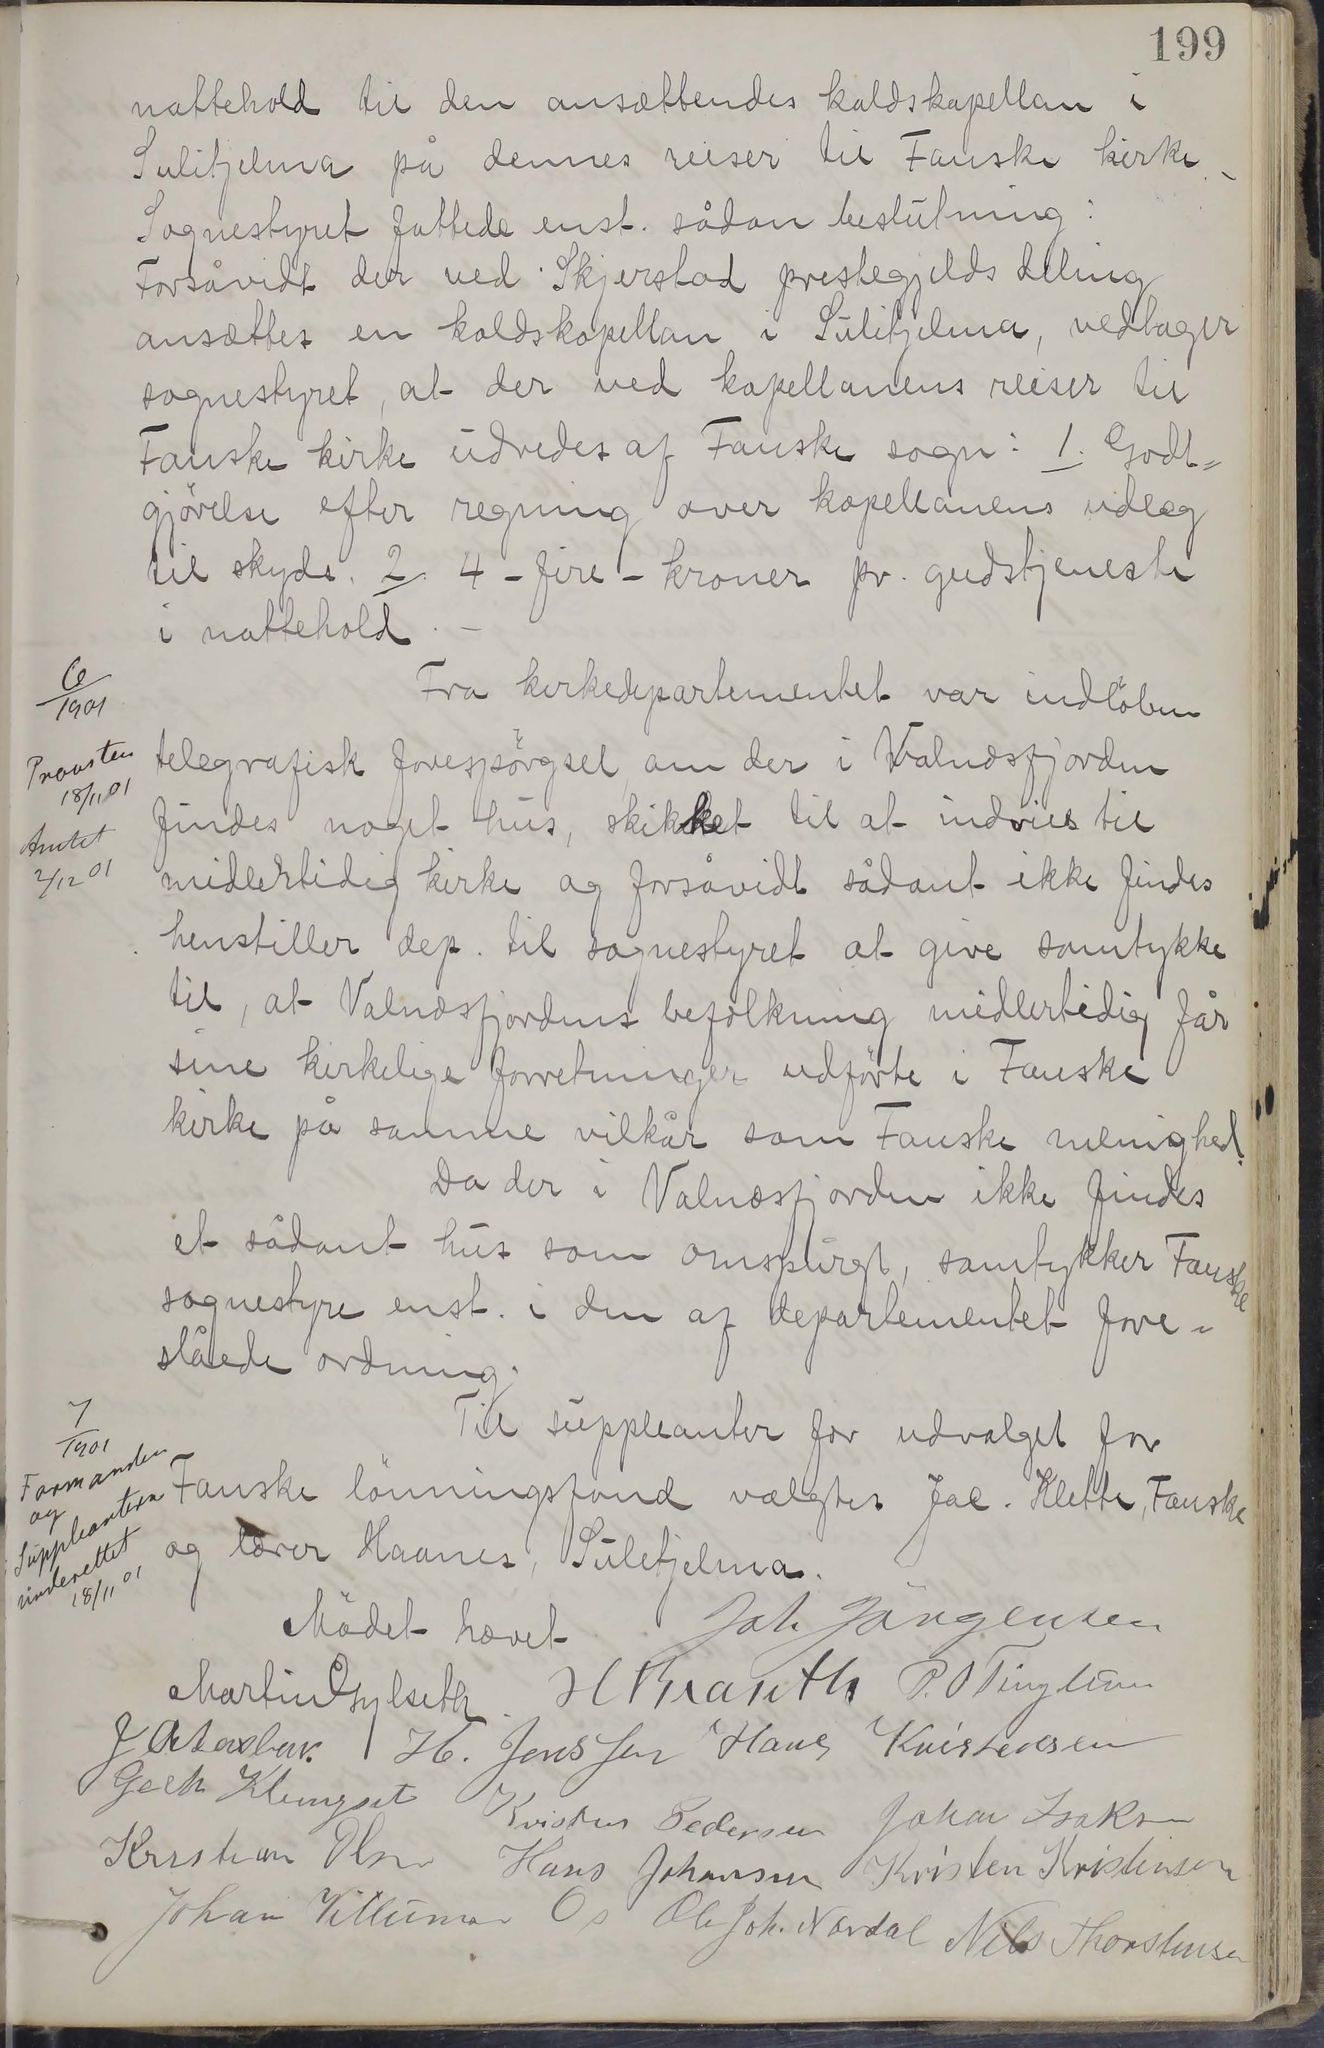 199
nattehold til den ansættendes kaldskapellan i
Sulitjelma på dennes reiser til Fauske kirke.
Sognestyret fattede enst. sådan beslutning:
Forsåvidt der ved Skjerstad prestegjelds deling
ansættes en kaldskapellan i Sulitjelma, vedtager
sognestyret, at der ved kapellanens reiser til
Fauske kirke udredes af Fauske sogn: 1. Godt-
gjörelse efter regning over kapellanens udlæg
til skyds. 2. 4 - fire - kroner pr. gudstjeneste
i nattehold. -
6/1901
Fra kirkedepartementet var indlöben
Provsten
18/11 01
telegrafisk forespörgsel om der i Valnæsfjorden
Amtet
2/12 01
findes noget hus, skikket til at indvies til
midlertidig kirke og forsåvidt sådant ikke findes
henstiller dep. til sognestyret at give samtykke
til, at Valnæsfjordens befolkning midlertidig får
sine kirkelige forretninger udförte i Fauske
kirke på samme vilkår som Fauske menighed.
Da der i Valnæsfjorden ikke findes
et sådant hus som omspurgt, samtykker Fauske
sognestyre enst. i den af departementet fore-
slåede ordning.
7/1901
Til suppleanter for udvalget for
Formanden
og
Suppleanterne
underettet
18/11 01
Fauske lönningsfond valgtes Jac. Klette, Fauske
og lærer Haanes, Sulitjelma.
Mödet hævet
Joh Jörgensen
Martin Gylseth. P. O Tingleum
H. Jenssen Hans Kristensen
Klungset
Kristen Pedersen Johan Isaksen
Kristian Olsen Hans Johansen Kristen Kristensen
Johan Villumsen Os Ole Joh. Nordal Nils Thorstensen